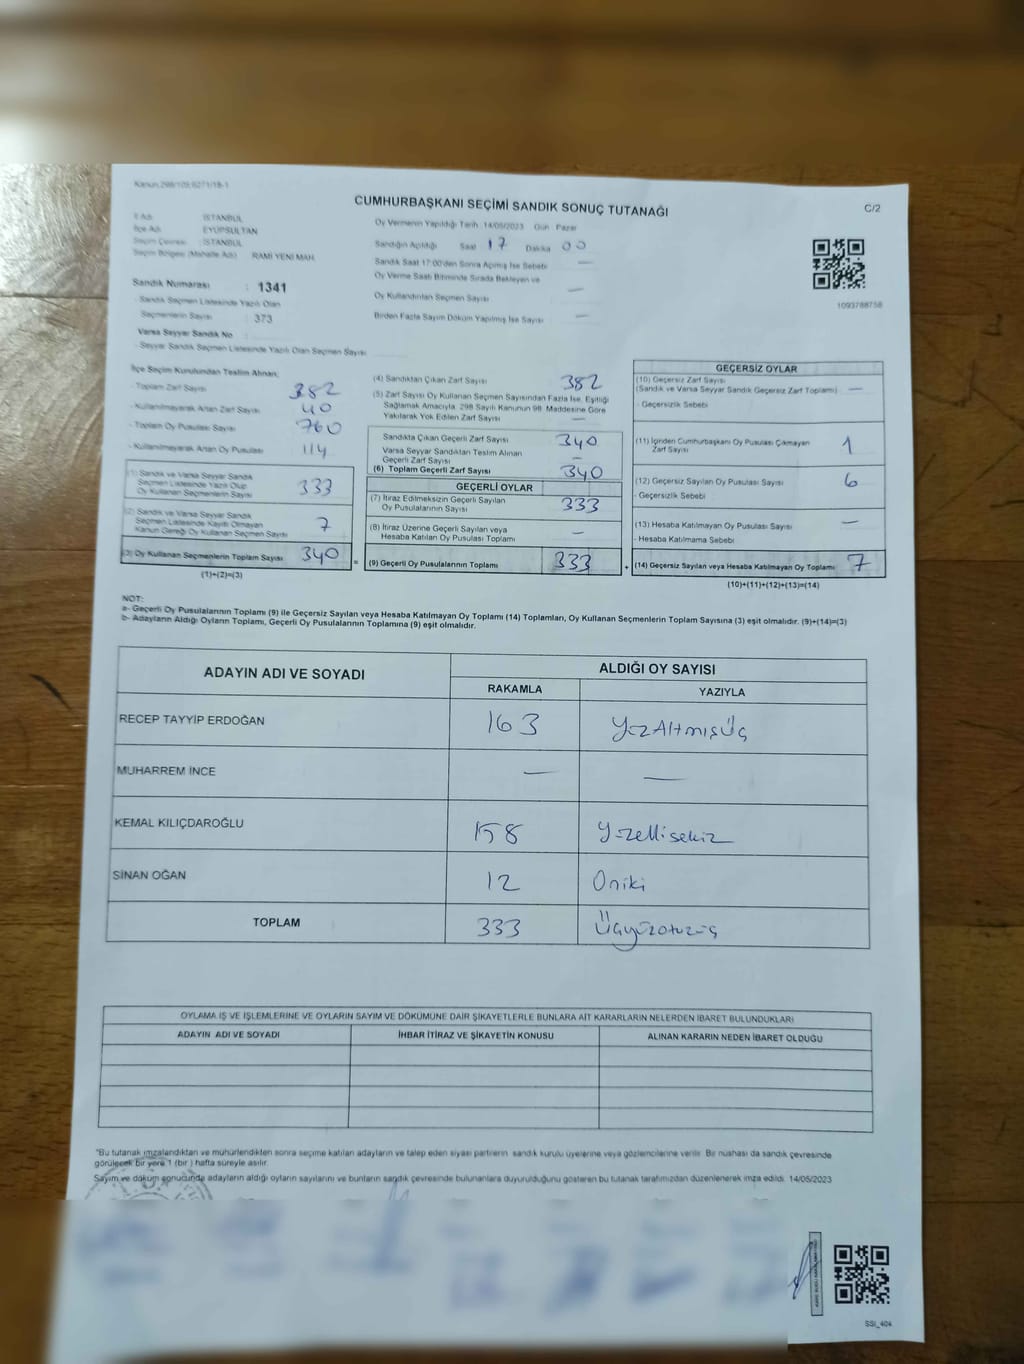 Kanun:298/109;6271/18-1
CUMHURBAŞKANI SEÇİMİ SANDIK SONUÇ TUTANAĞI
C/2
İl Adı : İSTANBUL
İlçe Adı : EYÜPSULTAN
Seçim Çevresi : İSTANBUL
Seçim Bölgesi (Mahalle Adı) : RAMİ YENİ MAH.
Sandık Numarası : 1341
- Sandık Seçmen Listesinde Yazılı Olan
Seçmenlerin Sayısı : 373
Varsa Seyyar Sandık No :
- Seyyar Sandık Seçmen Listesinde Yazılı Olan Seçmen Sayısı
Oy Vermenin Yapıldığı Tarih 14/05/2023 Gün Pazar
Sandığın Açıldığı Saat 17 Dakika 00
Sandık Saat 17:00'den Sonra Açılmış İse Sebebi —
Oy Verme Saati Bitiminde Sırada Bekleyen ve
Oy Kullandırılan Seçmen Sayısı —
Birden Fazla Sayım Döküm Yapılmış İse Sayısı —
1093788758
İlçe Seçim Kurulundan Teslim Alınan;
- Toplam Zarf Sayısı 382
- Kullanılmayarak Artan Zarf Sayısı 40
- Toplam Oy Pusulası Sayısı 760
- Kullanılmayarak Artan Oy Pusulası 114
(1) Sandık ve Varsa Seyyar Sandık
Seçmen Listesinde Yazılı Olup
Oy Kullanan Seçmenlerin Sayısı 333
(2) Sandık ve Varsa Seyyar Sandık
Seçmen Listesinde Kayıtlı Olmayan
Kanun Gereği Oy Kullanan Seçmen Sayısı 7
(3) Oy Kullanan Seçmenlerin Toplam Sayısı 340
(1)+(2)=(3)
(4) Sandıktan Çıkan Zarf Sayısı 382
(5) Zarf Sayısı Oy Kullanan Seçmen Sayısından Fazla İse, Eşitliği
Sağlamak Amacıyla 298 Sayılı Kanunun 98. Maddesine Göre
Yakılarak Yok Edilen Zarf Sayısı —
Sandıkta Çıkan Geçerli Zarf Sayısı 340
Varsa Seyyar Sandıktan Teslim Alınan
Geçerli Zarf Sayısı —
(6) Toplam Geçerli Zarf Sayısı 340
GEÇERLİ OYLAR
(7) İtiraz Edilmeksizin Geçerli Sayılan
Oy Pusulalarının Sayısı 333
(8) İtiraz Üzerine Geçerli Sayılan veya
Hesaba Katılan Oy Pusulası Toplamı —
= (9) Geçerli Oy Pusulalarının Toplamı 333
GEÇERSİZ OYLAR
(10) Geçersiz Zarf Sayısı
(Sandık ve Varsa Seyyar Sandık Geçersiz Zarf Toplamı) —
- Geçersizlik Sebebi
(11) İçinden Cumhurbaşkanı Oy Pusulası Çıkmayan
Zarf Sayısı 1
(12) Geçersiz Sayılan Oy Pusulası Sayısı 6
- Geçersizlik Sebebi
(13) Hesaba Katılmayan Oy Pusulası Sayısı —
- Hesaba Katılmama Sebebi
+ (14) Geçersiz Sayılan veya Hesaba Katılmayan Oy Toplamı 7
(10)+(11)+(12)+(13)=(14)
NOT:
a- Geçerli Oy Pusulalarının Toplamı (9) ile Geçersiz Sayılan veya Hesaba Katılmayan Oy Toplamı (14) Toplamları, Oy Kullanan Seçmenlerin Toplam Sayısına (3) eşit olmalıdır. (9)+(14)=(3)
b- Adayların Aldığı Oyların Toplamı, Geçerli Oy Pusulalarının Toplamına (9) eşit olmalıdır.
ADAYIN ADI VE SOYADI
ALDIĞI OY SAYISI
RAKAMLA YAZIYLA
RECEP TAYYİP ERDOĞAN 163 YüzAltmışÜç
MUHARREM İNCE — —
KEMAL KILIÇDAROĞLU 158 Yüzellisekiz
SİNAN OĞAN 12 Oniki
TOPLAM 333 Üçyüzotuzüç
OYLAMA İŞ VE İŞLEMLERİNE VE OYLARIN SAYIM VE DÖKÜMÜNE DAİR ŞİKAYETLERLE BUNLARA AİT KARARLARIN NELERDEN İBARET BULUNDUKLARI
ADAYIN ADI VE SOYADI İHBAR İTİRAZ VE ŞİKAYETİN KONUSU ALINAN KARARIN NEDEN İBARET OLDUĞU
"Bu tutanak imzalandıktan ve mühürlendikten sonra seçime katılan adayların ve talep eden siyasi partilerin sandık kurulu üyelerine veya gözlemcilerine verilir. Bir nüshası da sandık çevresinde
görülecek bir yere 1 (bir) hafta süreyle asılır.
Sayım ve döküm sonucunda adayların aldığı oyların sayılarını ve bunların sandık çevresinde bulunanlara duyurulduğunu gösteren bu tutanak tarafımızdan düzenlenerek imza edildi. 14/05/2023
SSİ_404